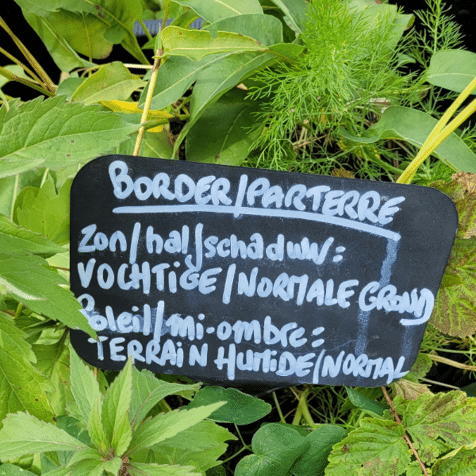 BORDER/PARTERRE
Zon/half/schaduw:
VOCHTIGE/NORMALE GROND
Soleil/mi-ombre:
TERRAIN HUMIDE/NORMAL